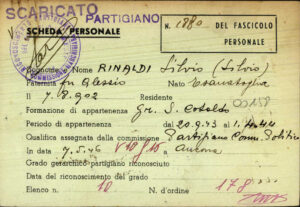 SCARICATO PARTIGIANO
SCHEDA PERSONALE
N. 1880 DEL FASCICOLO PERSONALE
Cognome Nome RINALDI Silvio (Silvio)
Paternità fu Nato Esanatoglia
Il 7.12.902 Residente
Formazione di appartenenza Gr. S. Cataldo
Periodo di appartenenza dal 20.9.43 al
Qualifica assegnata dalla commissione Partigiano Comb.
In data 7.5.46 Ancona
Grado gerarchico partigiano riconosciuto
Data del riconoscimento del grado
Elenco n. 18 N. d'ordine 178